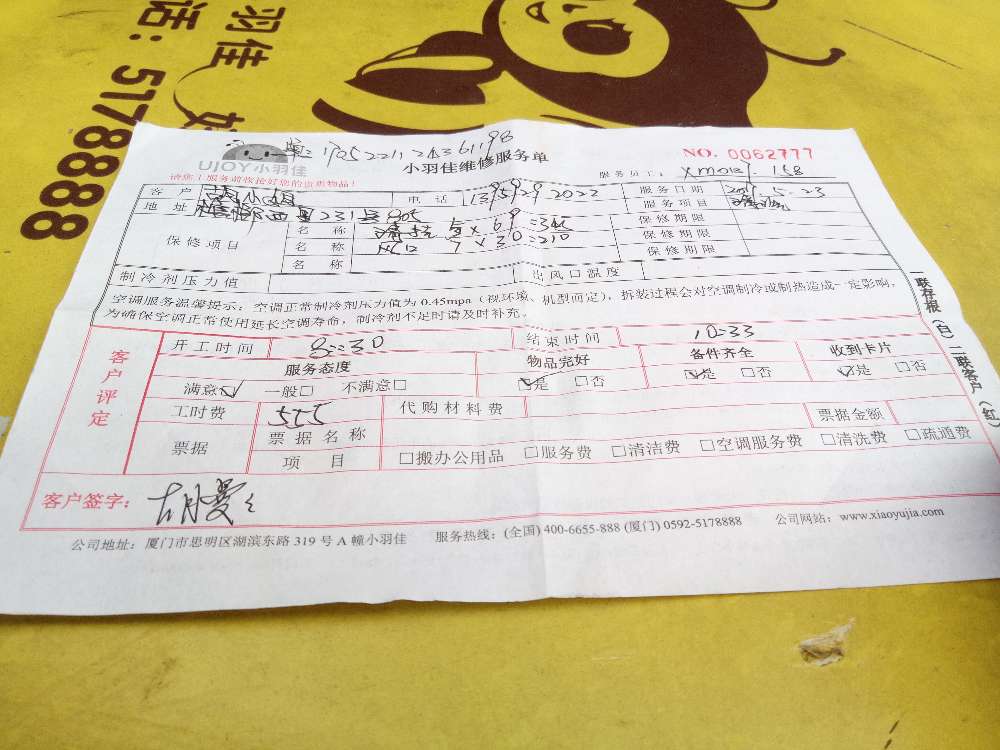 羽佳 好
话: 5178888
单: 170522112436119B
小羽佳维修服务单
NO. 0062777
UJOY小羽佳
请您！服务前收拾好您的贵重物品！
服务员工:
客户 胡小姐 电话 服务日期 5.23
地址 231 服务项目 清洗
保修项目 名称 清洗 5×69=345 保修期限
名称 7×30=210 保修期限
名称 保修期限
制冷剂压力值 出风口温度
空调服务温馨提示: 空调正常制冷剂压力值为 0.45mpa（视环境、机型而定），拆装过程会对空调制冷或制热造成一定影响，
为确保空调正常使用延长空调寿命，制冷剂不足时请及时补充。
一联存根（白）二联客户（红）
客户评定
开工时间 8:30 结束时间 10:33
服务态度 物品完好 备件齐全 收到卡片
满意☑ 一般□ 不满意□ ☑是 □否 ☑是 □否 ☑是 □否
工时费 555 代购材料费 票据金额
票据 票据名称
项目 □搬办公用品 □服务费 □清洁费 □空调服务费 □清洗费 □疏通费
客户签字:
公司地址: 厦门市思明区湖滨东路 319 号 A 幢小羽佳 服务热线: (全国) 400-6655-888 (厦门) 0592-5178888 公司网站: www.xiaoyujia.com